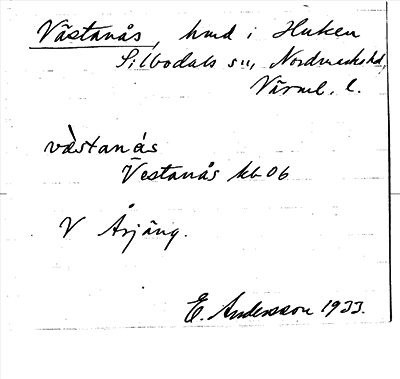 Västanås, hmd i Huken
Silbodals sn, Nordmarks hd,
Värml. l.
vàstanås
Vestanås kb 06
V Årjäng.
E. Andersson 1933.